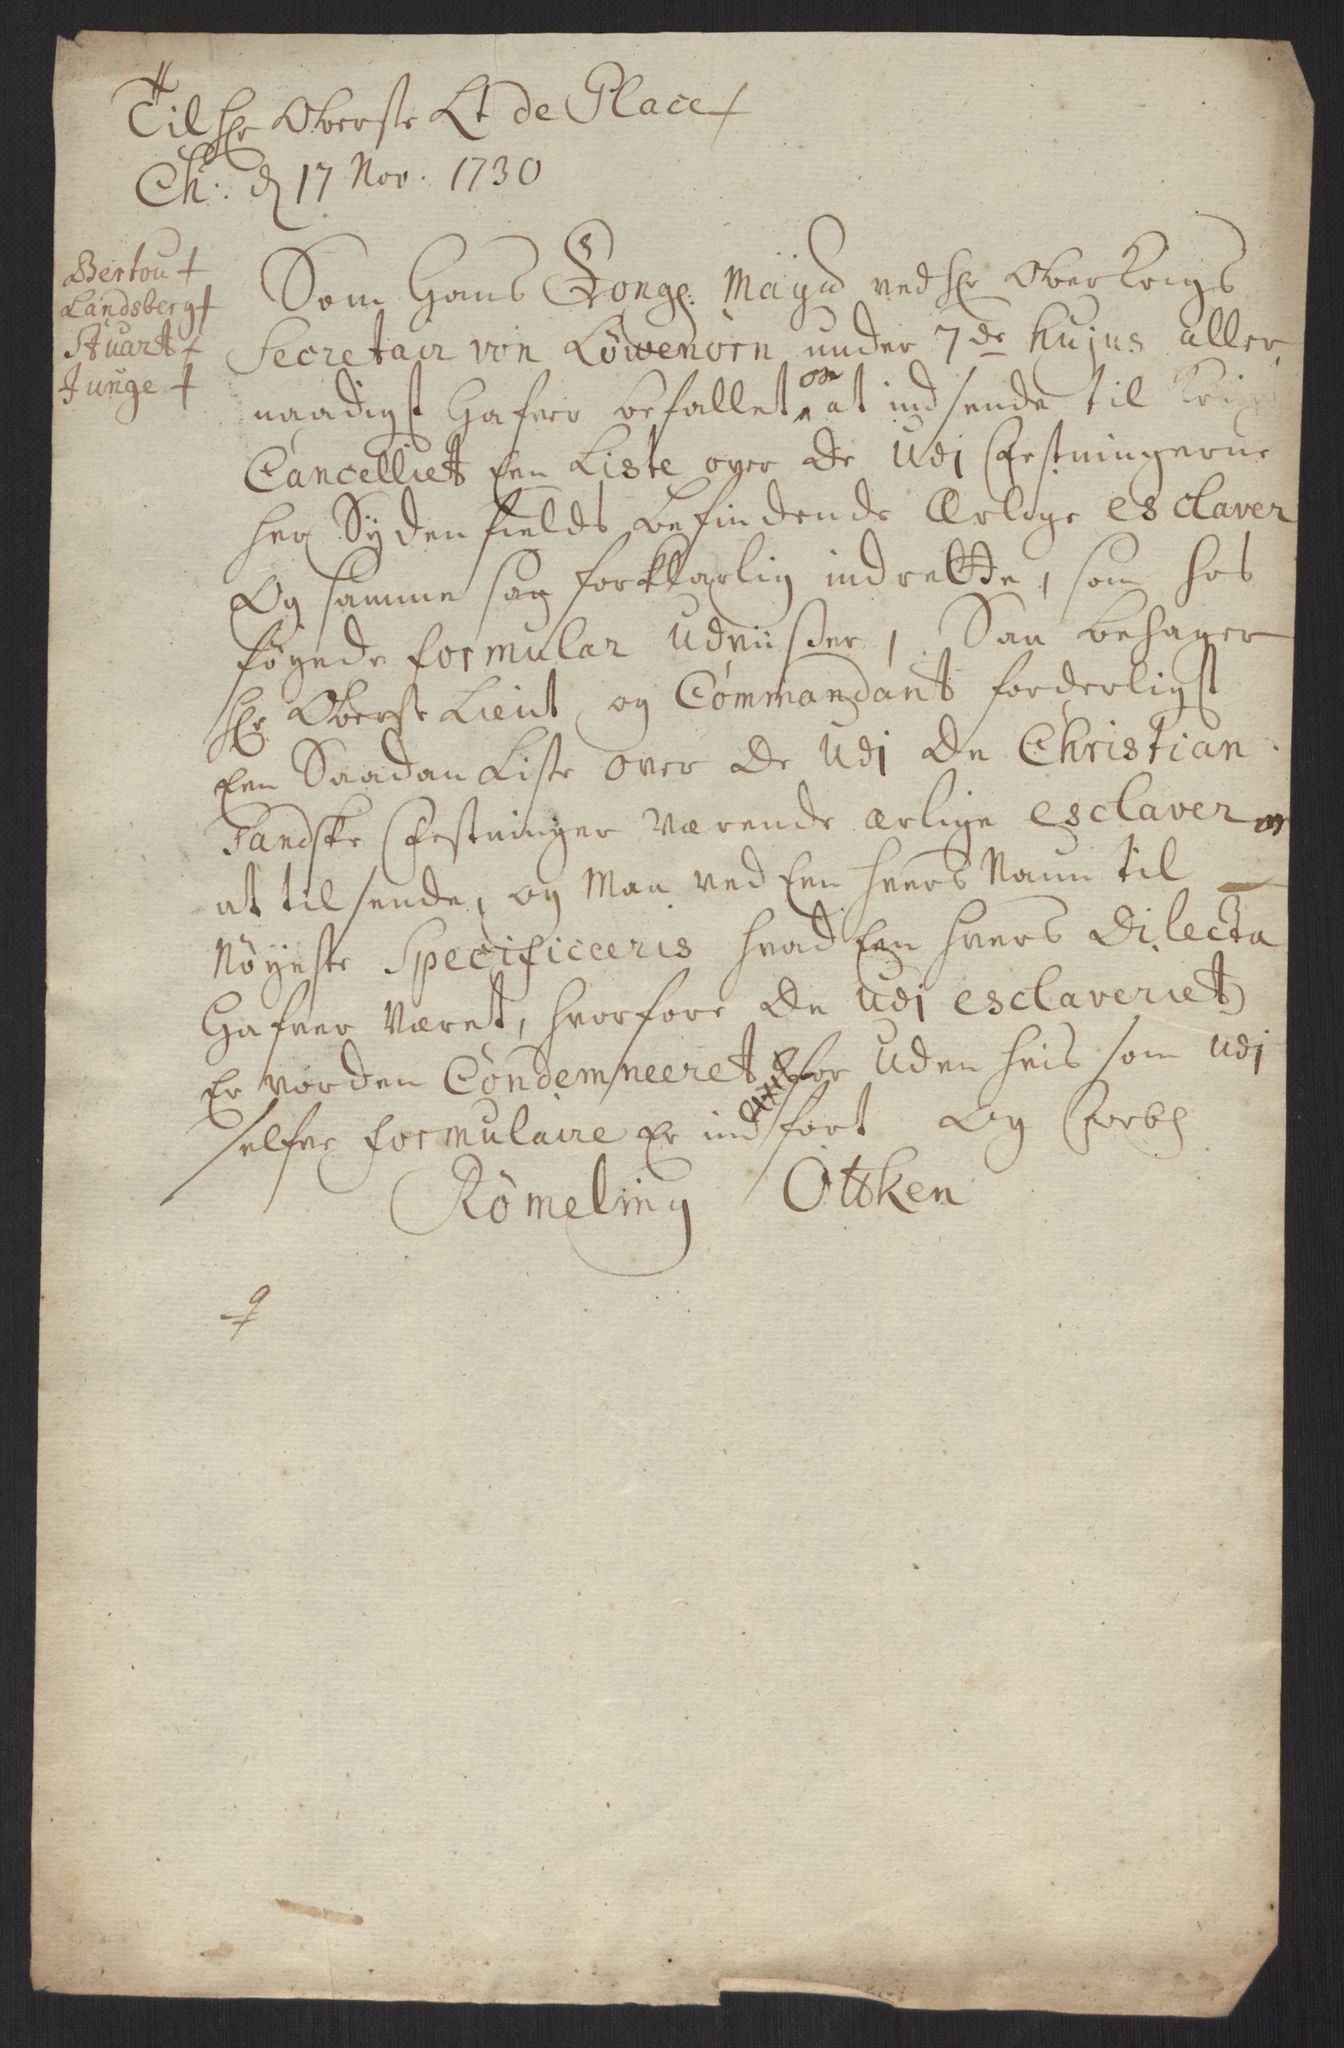 Til Hr Oberste Lt de Place
Ch: d 17 Nov. 1730
Bertou
Landsberg
Stuart
Junge
Som Hans Kongl: Mayts ved Hr Ober Krigs
Secretair von Löwenörn under 7de hujus aller
naadigst hafver befallet os at indsende til Krigs
Cancelliet Een Liste over de udj Festningerne
her Sydenfields befindende Ærlige esclaver
Og samme saa forklarlig indrette, som hos
föyede formular udviisser, Saa behager
Hr Oberste Lieut og Commandant forderligst
Een Saadan Liste over de udj de Christian
Sandske Festninger værende ærlige esclaver os
at tilsende, og Maa ved Een hvers Naun til
Nöyeste Specificeeris hvad Een hvers Dilecta
Hafver Været, hvorfore De udj esclaveriet
Er vorden Condemneeret for uden hvis som udj
selfve formulaire Er indfört Og Forbl
Römeling Ottken